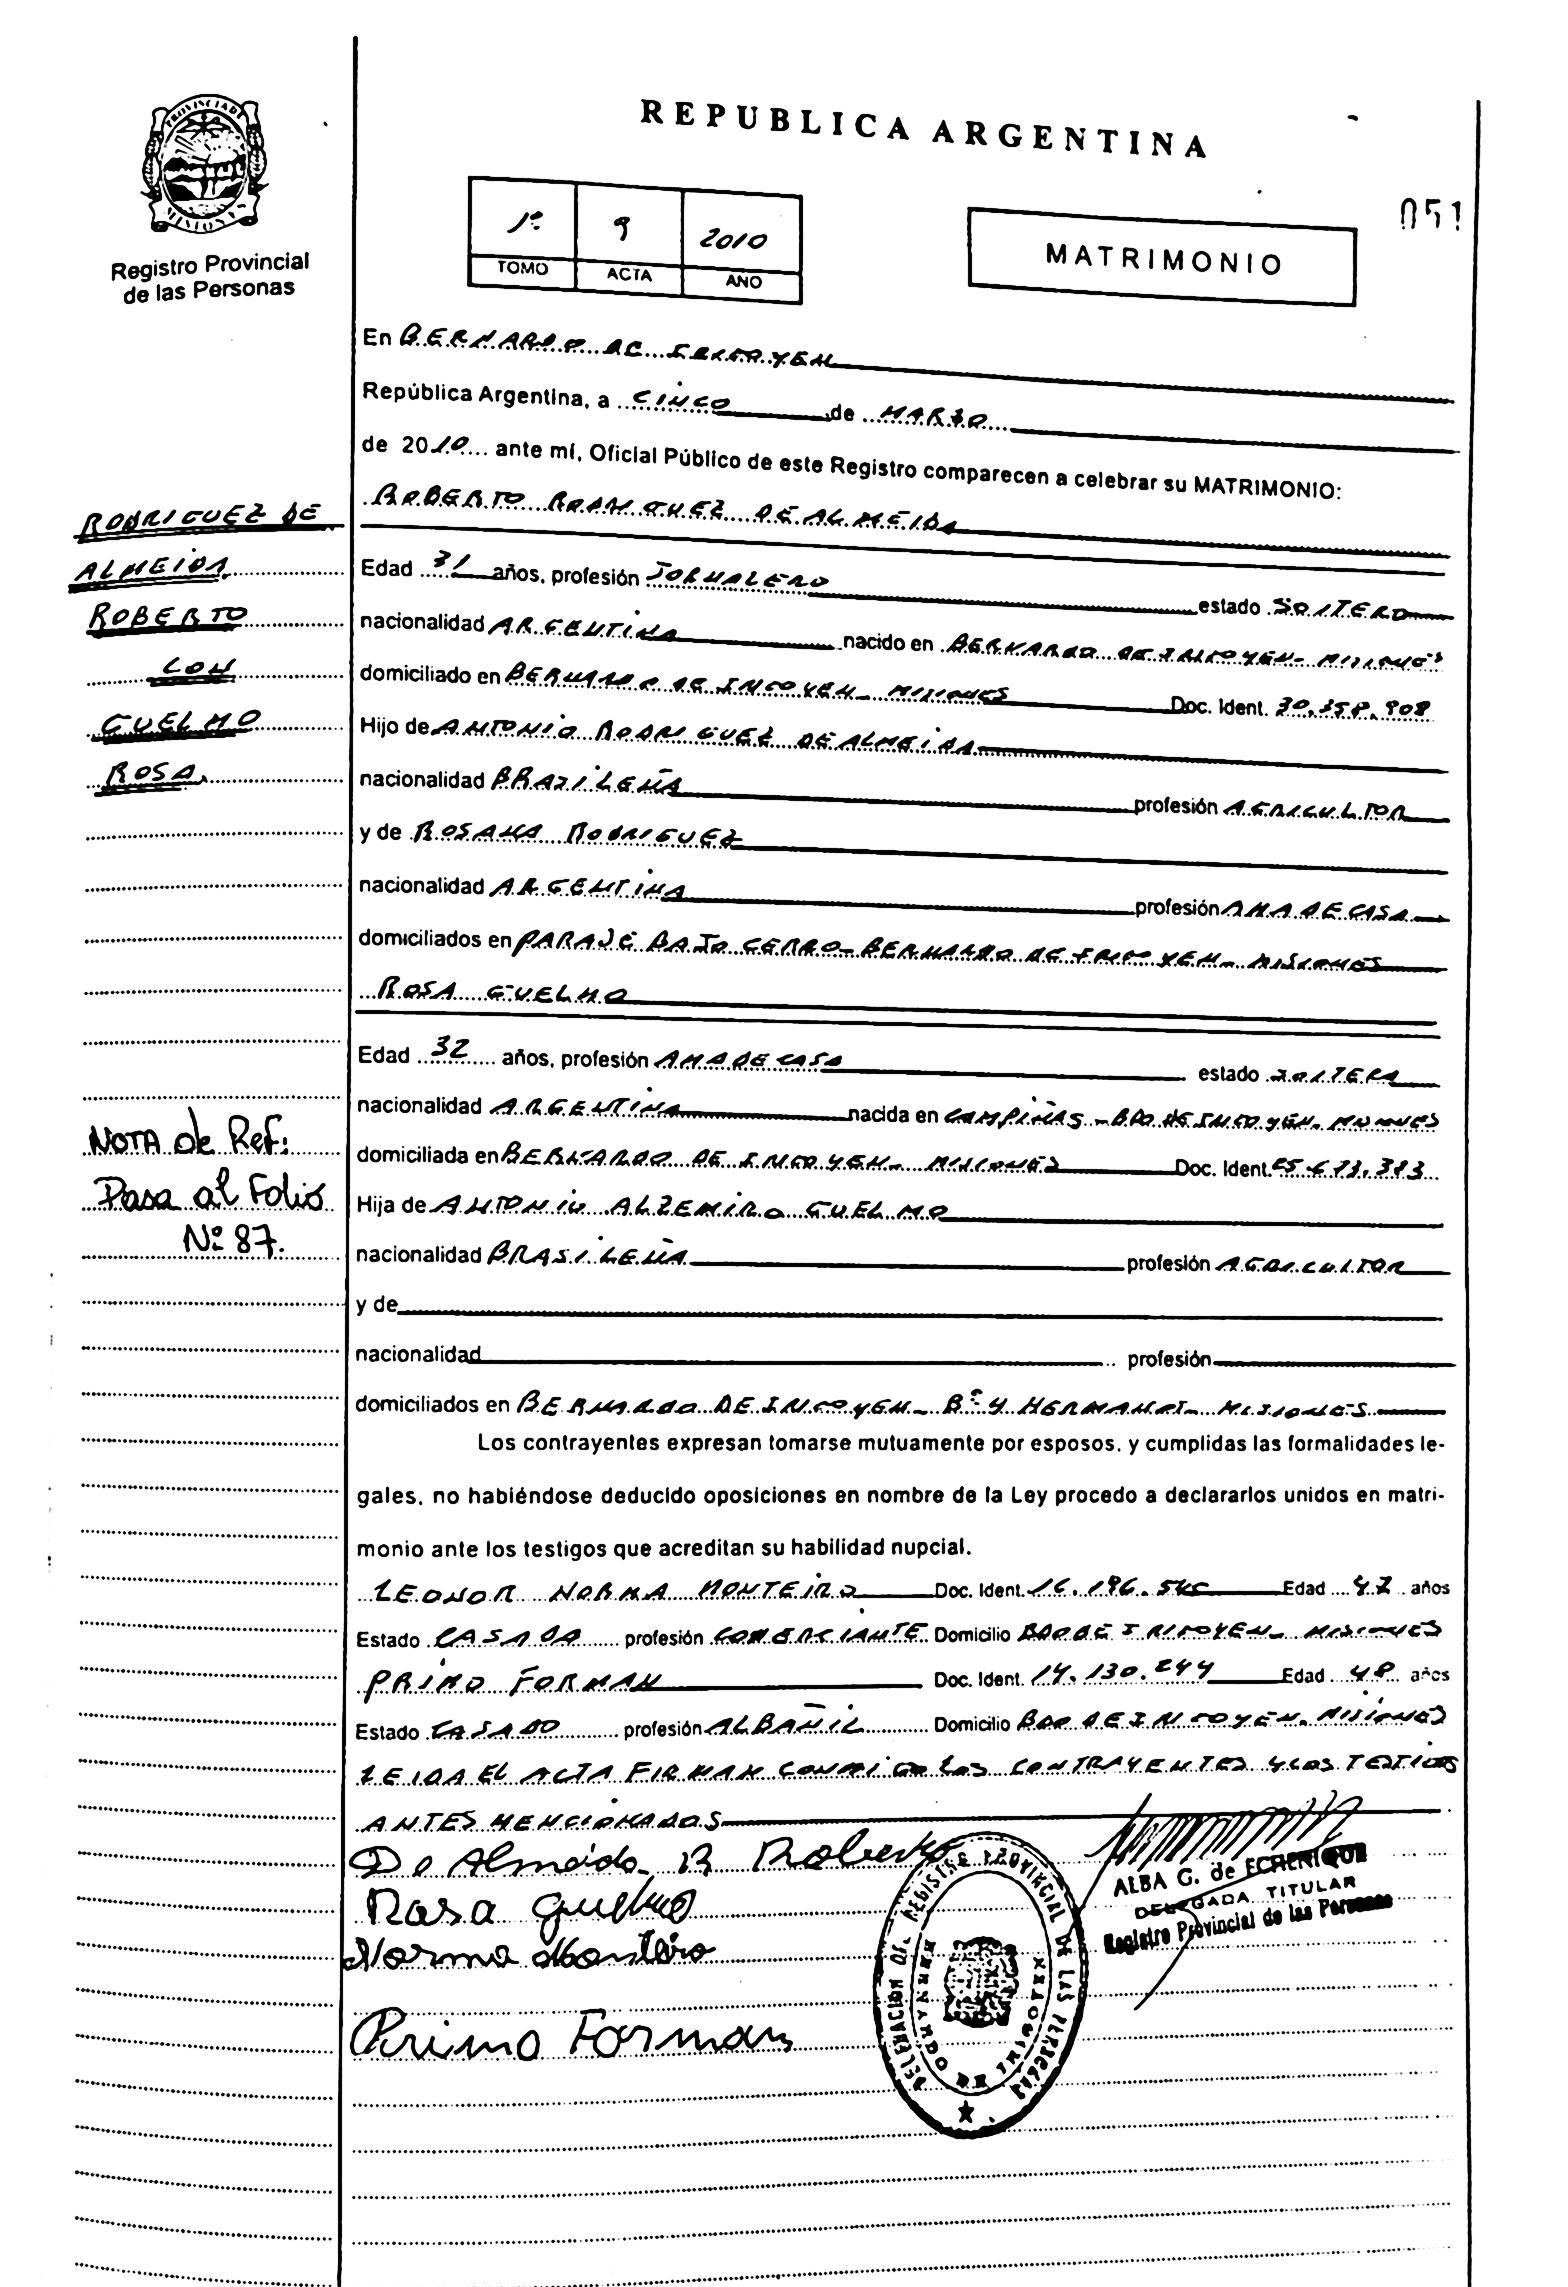 PROVINCIA DE
MISIONES
Registro Provincial
de las Personas
REPUBLICA ARGENTINA
1º 9 2010
TOMO ACTA AÑO
MATRIMONIO
051
En BERNARDO DE IRIGOYEN
República Argentina, a CINCO de MARZO
de 2010 ante mí, Oficial Público de este Registro comparecen a celebrar su MATRIMONIO:
ROBERTO RODRIGUEZ DE ALMEIDA
Edad 31 años, profesión JORNALERO estado SOLTERO
nacionalidad ARGENTINA nacido en BERNARDO DE IRIGOYEN - MISIONES
domiciliado en BERNARDO DE IRIGOYEN - MISIONES Doc. Ident. 30.358.908
Hijo de ANTONIO RODRIGUEZ DE ALMEIDA
nacionalidad BRASILEÑA profesión AGRICULTOR
y de ROSANA RODRIGUEZ
nacionalidad ARGENTINA profesión AMA DE CASA
domiciliados en PARAJE BAJO CERRO - BERNARDO DE IRIGOYEN - MISIONES
ROSA GUELMO
Edad 32 años, profesión AMA DE CASA estado SOLTERA
nacionalidad ARGENTINA nacida en CAMPIÑAS - BDO DE IRIGOYEN - MISIONES
domiciliada en BERNARDO DE IRIGOYEN - MISIONES Doc. Ident.
Hija de ANTONIO ALZEMIRO GUELMO
nacionalidad BRASILEÑA profesión AGRICULTOR
y de
nacionalidad profesión
domiciliados en BERNARDO DE IRIGOYEN - Bº 4 HERMANAS - MISIONES
Los contrayentes expresan tomarse mutuamente por esposos, y cumplidas las formalidades le-
gales, no habiéndose deducido oposiciones en nombre de la Ley procedo a declararlos unidos en matri-
monio ante los testigos que acreditan su habilidad nupcial.
LEONOR NORMA MONTEIRO Doc. Ident. Edad 47 años
Estado CASADA profesión COMERCIANTE Domicilio BDO DE IRIGOYEN - MISIONES
PRIMO FORMAN Doc. Ident. 14.130.244 Edad 48 años
Estado CASADO profesión ALBAÑIL Domicilio BDO DE IRIGOYEN - MISIONES
LEIDA EL ACTA FIRMAN CONMIGO LOS CONTRAYENTES Y LOS TESTIGOS
ANTES MENCIONADOS
De Almeida R Roberto
Rosa Guelmo
Norma Monteiro
Primo Forman
DELEGACION DEL REGISTRO PROVINCIAL DE LAS PERSONAS
BERNARDO DE IRIGOYEN
ALBA G. de ECHENIQUE
DELEGADA TITULAR
Registro Provincial de las Personas
RODRIGUEZ DE
ALMEIDA
ROBERTO
CON
GUELMO
ROSA
NOTA de Ref:
Pasa al Folio
Nº 87.